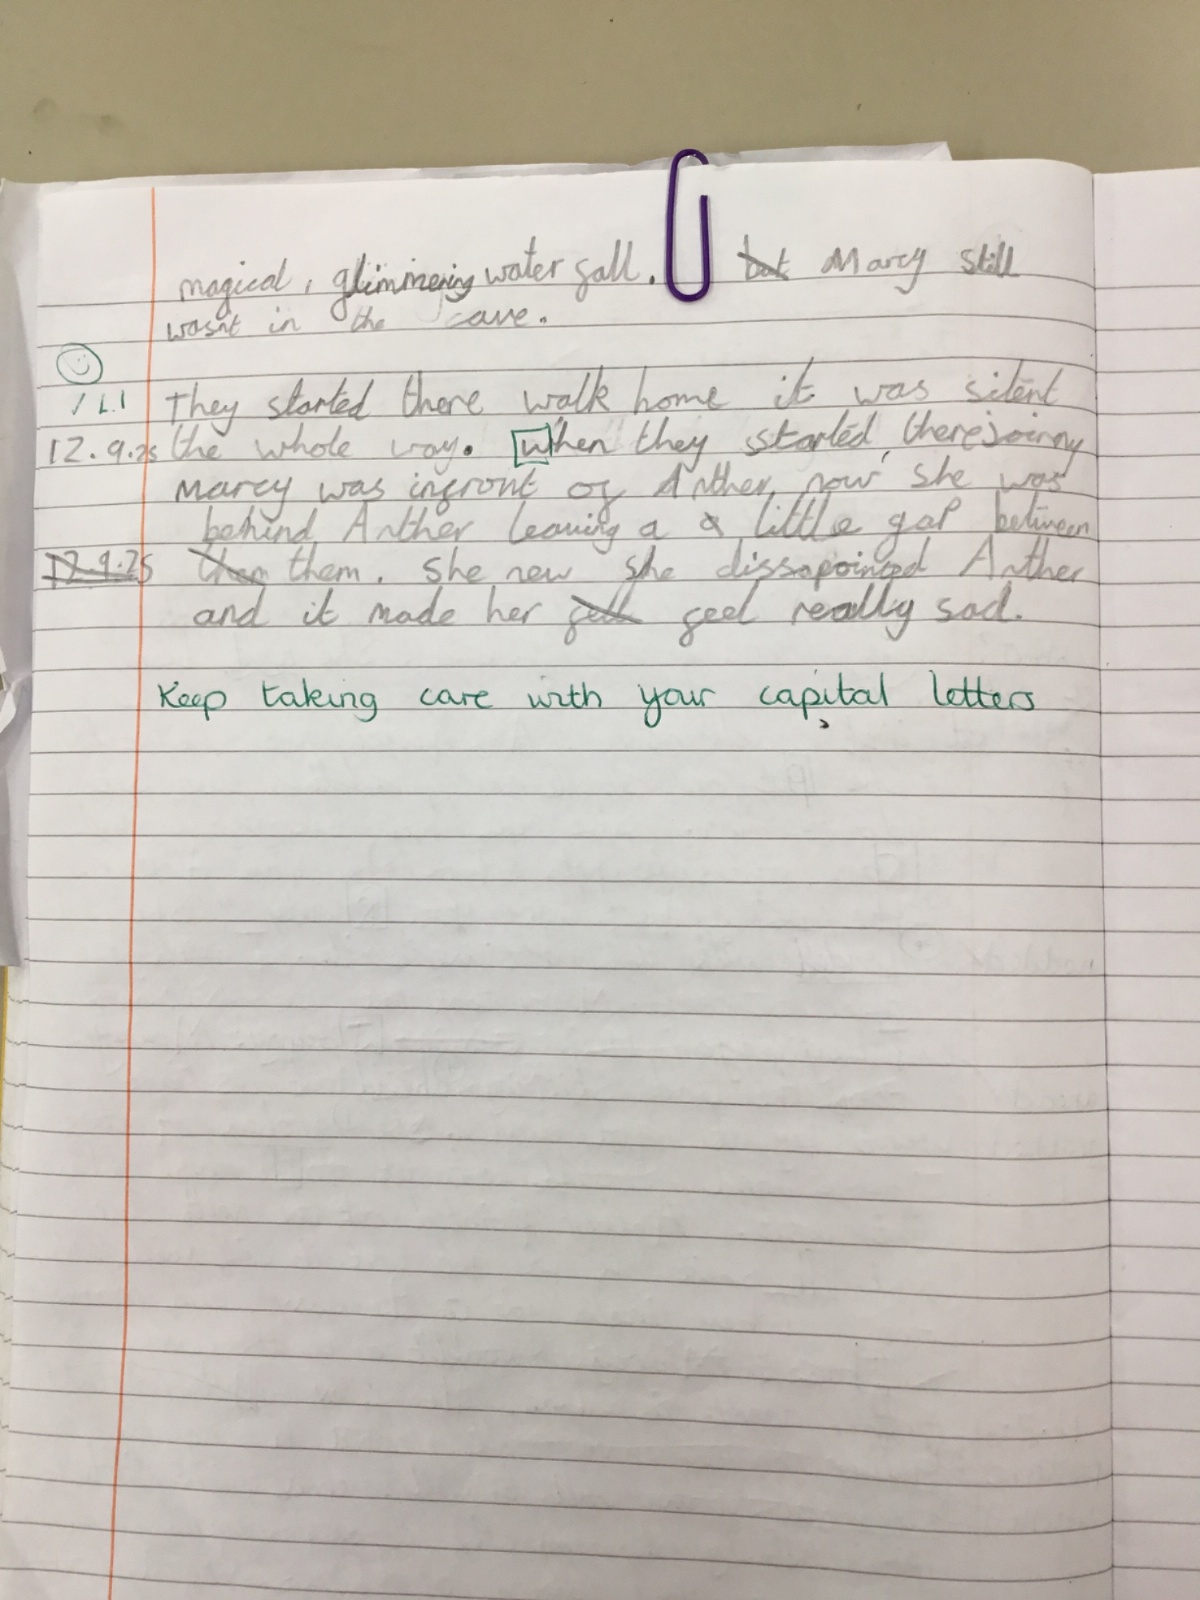 magical, glimmering water fall. but Marcy still
wasnt in the cave.
/ L.I They started there walk home it was silent
12.9.25 the whole way. When they started there joinny
Marcy was infront of Anther, now she was
behind Anther leaving a a little gap between
12.9.25 them them. she new she dissapointed Anther
and it made her fell feel really sad.
Keep taking care with your capital letters